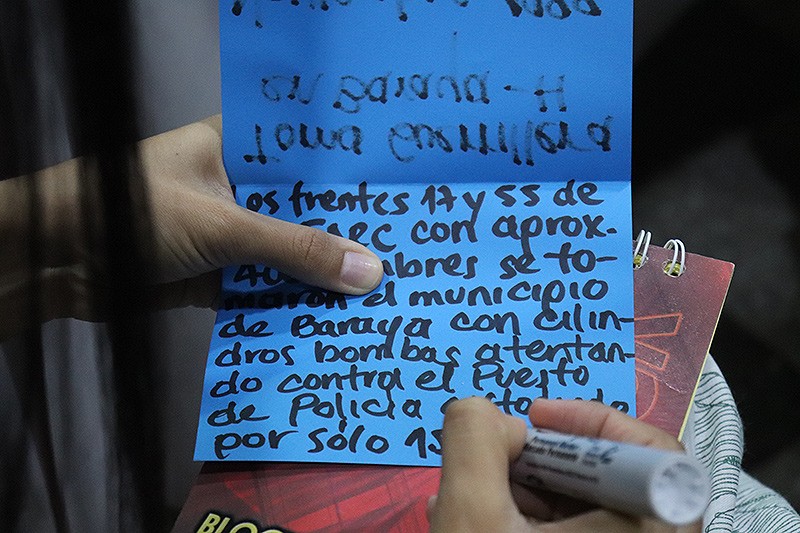 Toma Guerrillera
en Baraya - H
Los frentes 17 y 55 de
FARC con aprox-
hombres se to-
maron el municipio
de Baraya con cilin-
dros bombas atentan-
do contra el Puesto
de Policia
por sólo